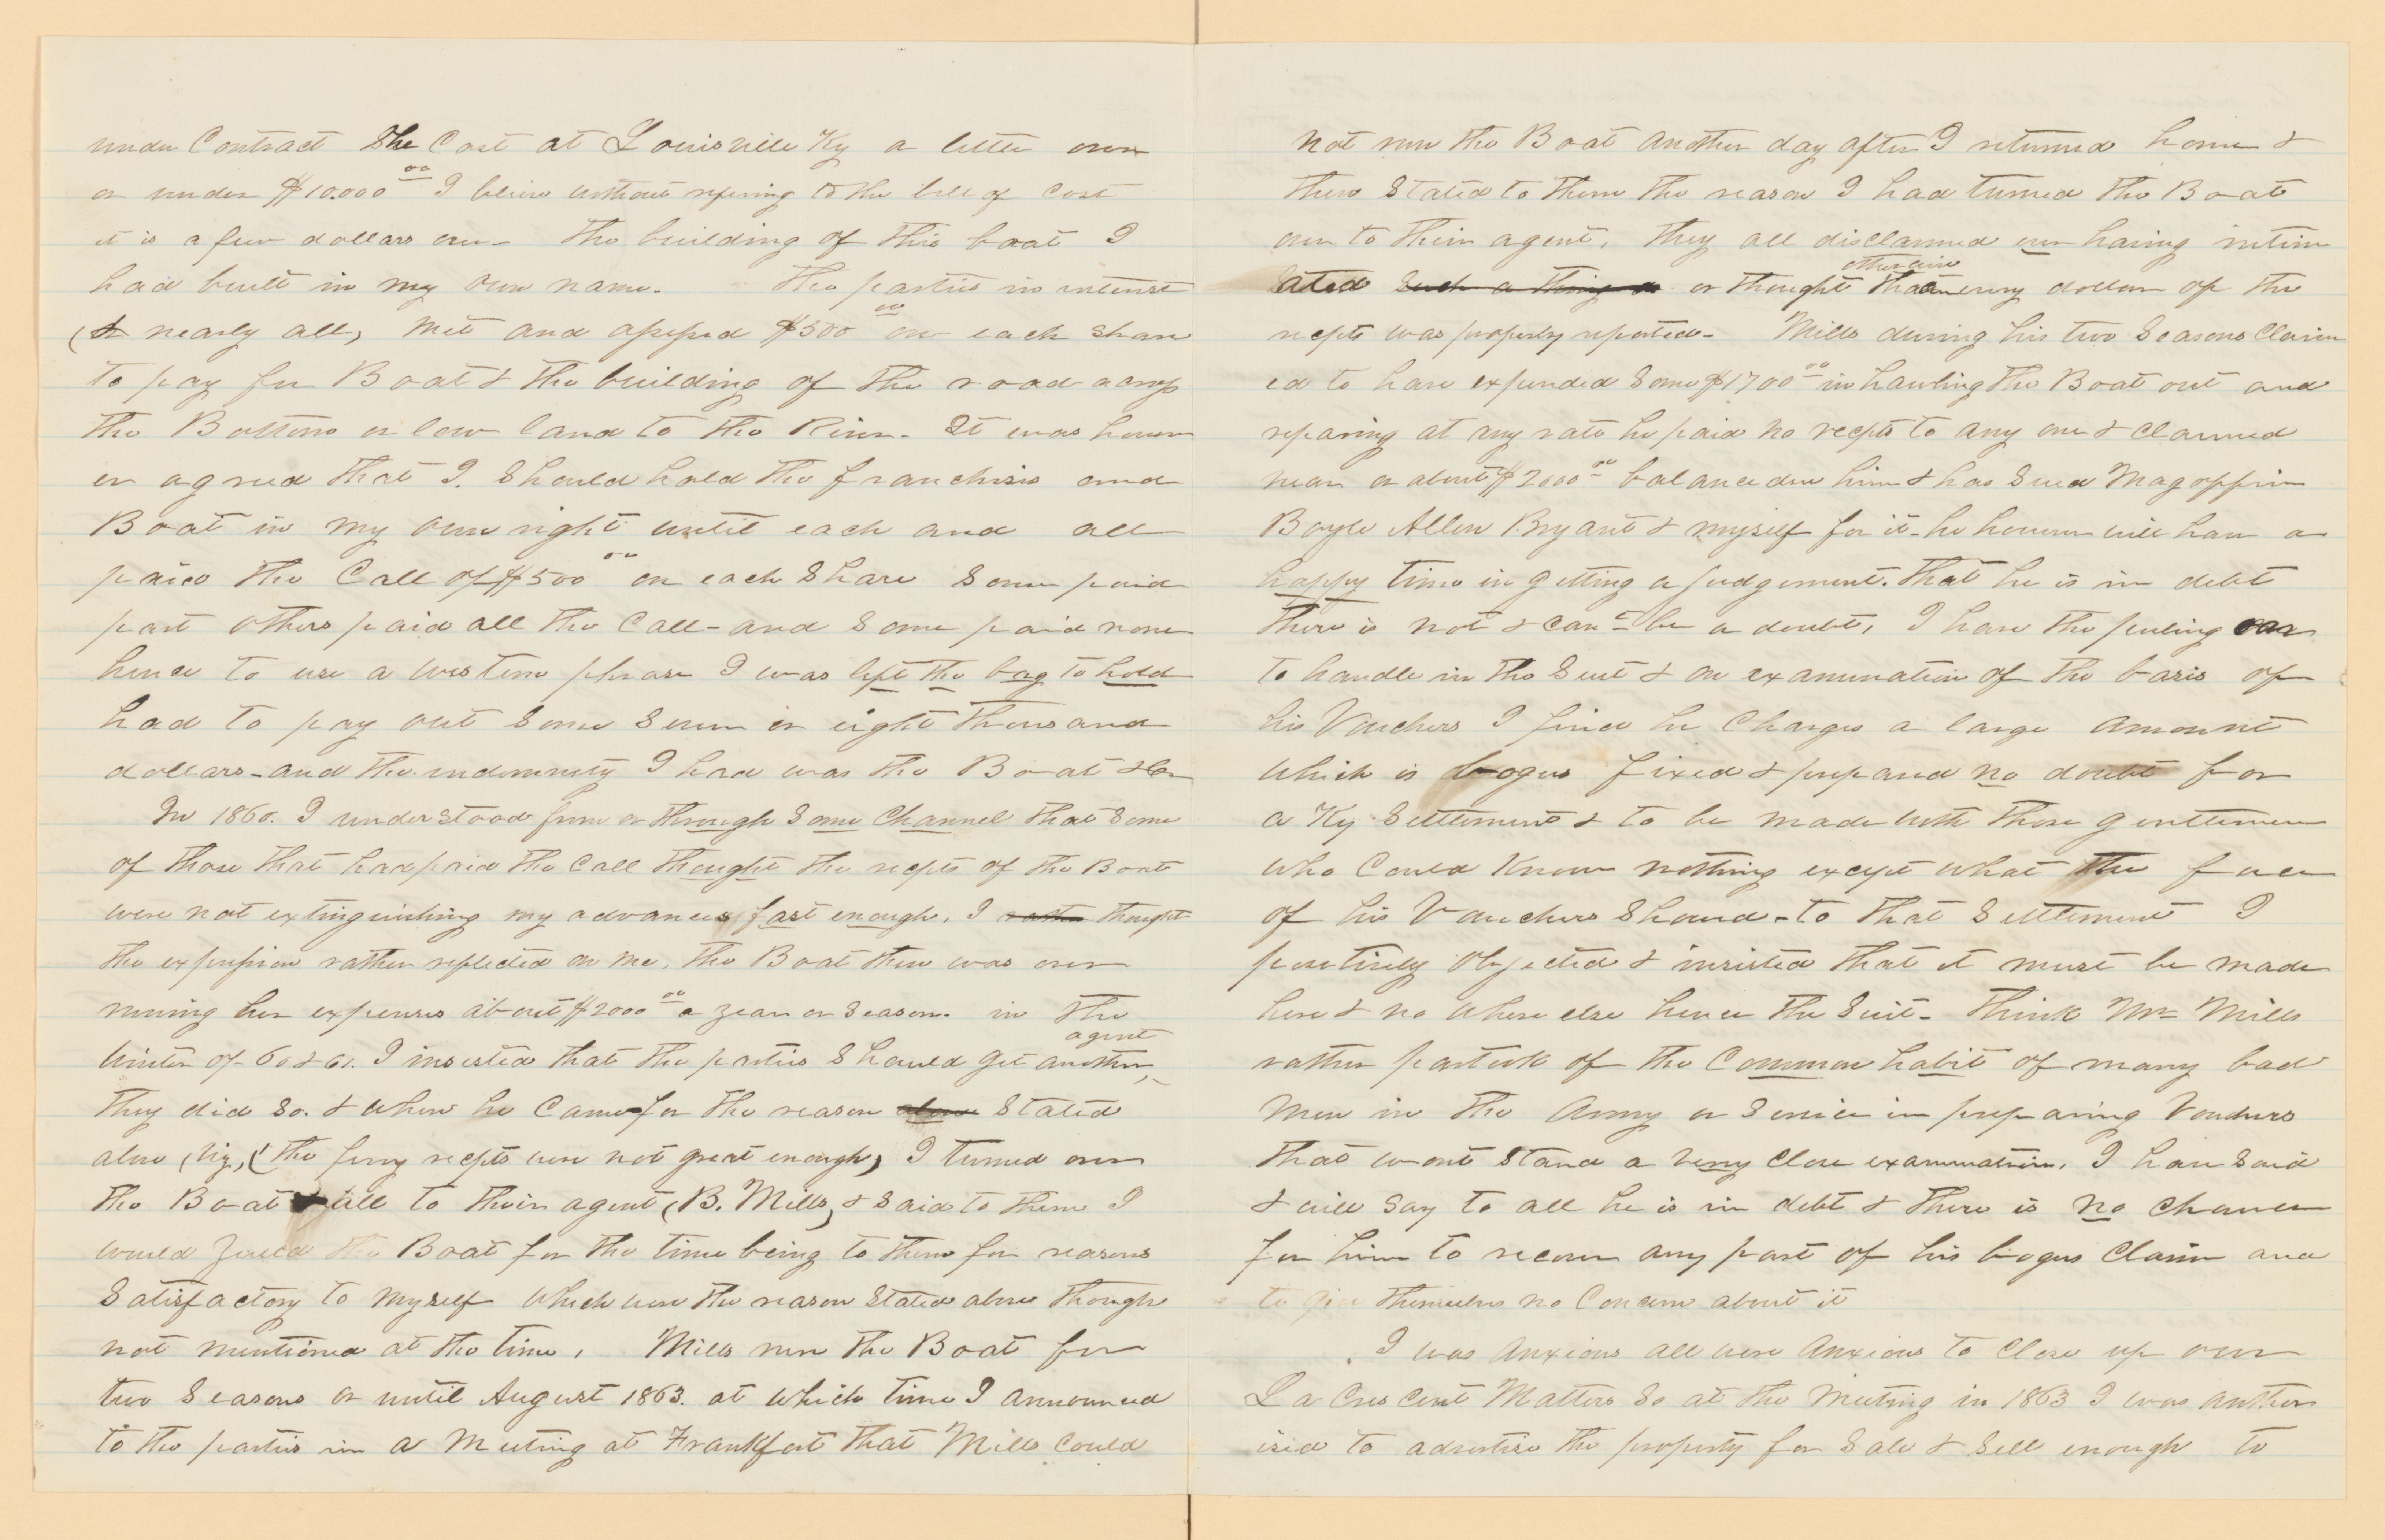 under Contract She Cost at Louisville Ky a little over
or under $10.000.00 I belive without refering to the bill of Cost
it is a few dollars over - The building of this boat I
had built in my own name. The parties in interest
(or nearly all) met and assessed $500.00 on each share
to pay for Boat & the building of the road across
the Bottoms or low land to the River. It was howev
er agreed that I. Should hold the franchise and
Boat in my own right until each and all
paid the Call of $500.00 on each Share Some paid
part others paid all the Call - and Some paid none
hence to use a western phrase I was left the bag to hold
had to pay out Some Seven or eight thousand
dollars - and the indemnity I had was the Boat &c
In 1860. I understood from or through Some Channel that Some
of those that had paid the Call thought the recpts of the Boat
were not extinguishing my advances fast enough. I rather thought
the expression rather reflected on me, the Boat then was over
runing her expenses about $2000.00 a year or Season. in the
agent
Winter of 60 & 61. I insisted that the parties Should get another,
they did So. & when he Came for the reason above Stated
above (viz, (the ferry recpts were not great enough) I turned over
the Boat & all to their agent (B. Mills) & Said to them I
would yield the Boat for the time being to them for reasons
Satisfactory to myself which were the reason Stated above though
not mentioned at the time, Mills run the Boat for
two Seasons or until August 1863. at which time I announced
to the parties in a Meeting at Frankfort that Mills Could
not run the Boat another day after I returned home &
then Stated to them the reason I had turned the Boat
over to their agent, they all disclaimed ever having intim
otherwise
ated Such a thing or or thought than every dollar of the
recpts was properly reported - Mills during his two Seasons Claim
ed to have expended Some $1700.00 in hauling the Boat out and
reparing at any rate he paid no recpts to any one & claimed
near or about $2000.00 balance due him & has Sued Magoffin
Boyle Allen Bryant & myself for it - he however will have a
happy time in getting a judgement. That he is in debt
there is not & can't be a doubt, I have the puling oar
to handle in the Suit & on examination of the basis of
his Vouchers I find he Charges a large amount
which is bogus fixed & prepared no doubt for
a Ky Settlement & to be made with those gentlemen
who Could Know nothing except what the face
of his Vouchers Showed - to that Settlement I
positively objected & insisted that it must be made
here & no where else hence the Suit - Think Mr Mills
rather partook of the Common habit of many bad
Men in the Army or Service in preparing Vouchers
that wont Stand a very close examination, I have Said
& will Say to all he is in debt & there is no chance
for him to recover any part of his bogus Claim and
to give themselves no Concern about it
I was Anxious all were Anxious to Close up our
La Crescent Matters So at the Meeting in 1863 I was author
ised to advertise the property for Sale & Sell enough to